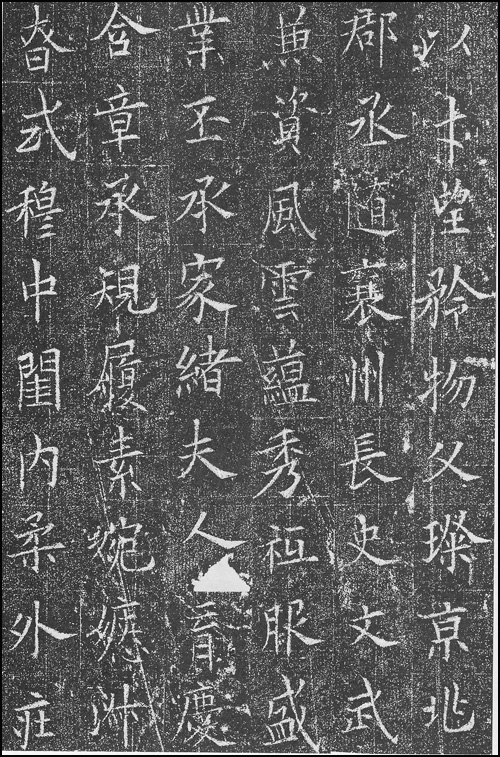 以才望矜物父璨京兆
郡丞襄州長史文武
兼資風雲蘊秀祗服盛
業丕承家緒夫人育慶
含章承規履素婉嫕淑
昚式穆中閨内柔外莊